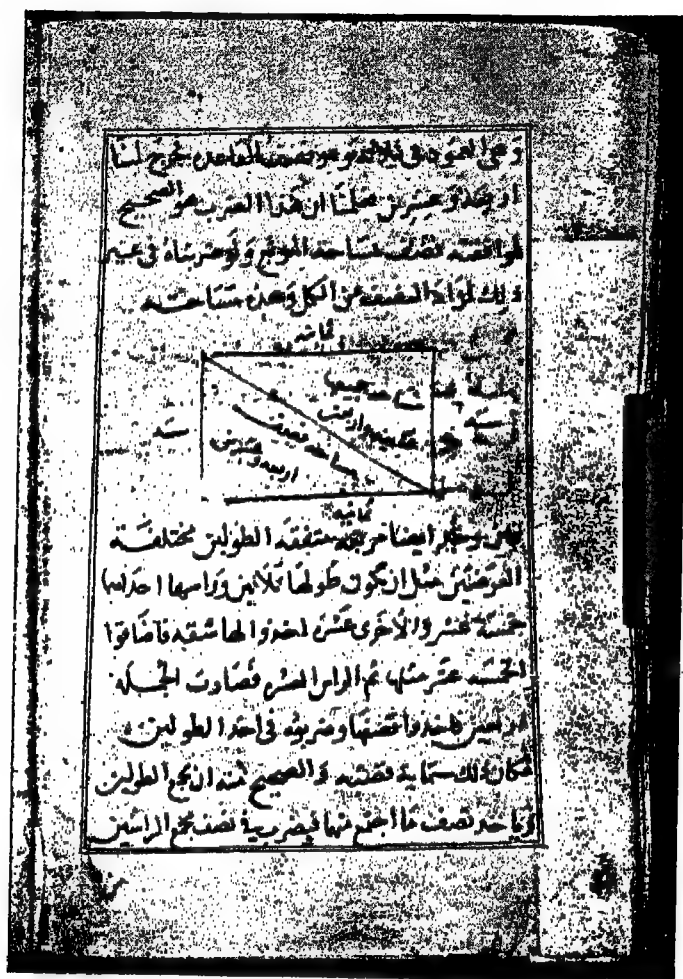 وهي العمود في ثلاثة وهو نصف القاعدة يخرج لنا
اربعة وعشرين علمنا ان هذا الضرب هو الصحيح
لموافقته نصف مساحة المربع ولو ضربناه في غير
ذلك لزاد النصف عن الكل وهذه مساحته
ثمانيه
مساحه جميعها
ثمانيه واربعين
سته
مساحه نصف
اربعه وعشرين
سته
ثمانيه
ايضا مربعه متفقة الطولين مختلفة
العرضين مثل ان يكون طولها ثلاثين وراسها احدلها
خمسة عشر والاخرى عشره
الخمسه عشر مثلها ثم الراس العشره فصارت الجمله
اربعين فاخذوا نصفها وضربوه في احد الطولين
فكان ذلك ستماية قصبه والصحيح منه ان يجمع الطولين
وياخد نصف ما اجتمع منها فيضرب في نصف جمع الراسين